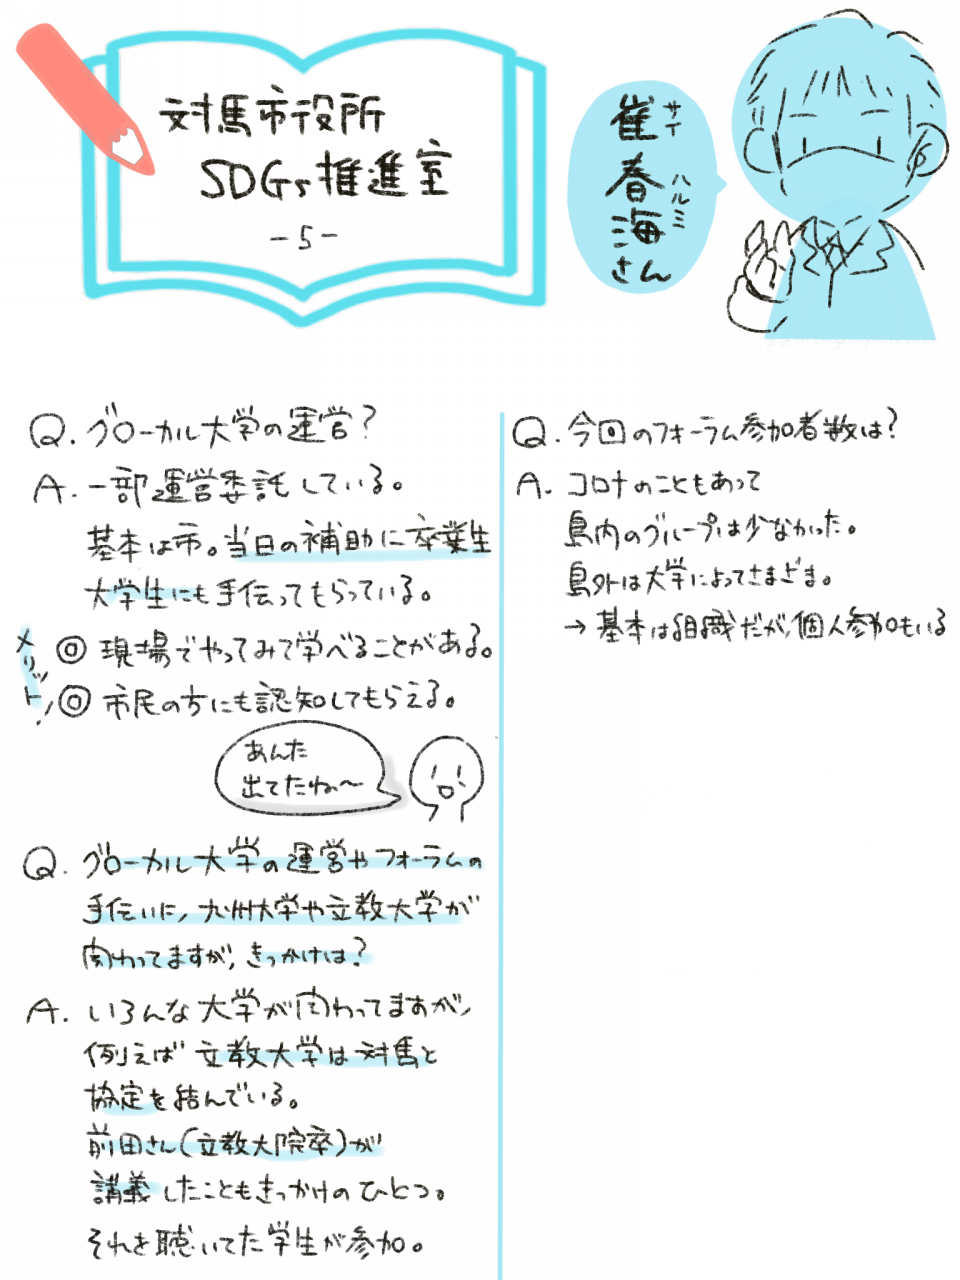 対馬市役所
SDGs推進室
-5-
崔春海さん
サイ
ハルミ
Q. グローカル大学の運営?
A. 一部運営委託している。
基本は市。当日の補助に卒業生
大学生にも手伝ってもらっている。
メリット!
◎ 現場でやってみて学べることがある。
◎ 市民の方にも認知してもらえる。
あんた
出てたね〜
Q. グローカル大学の運営やフォーラムの
手伝いに、九州大学や立教大学が
関わってますが、きっかけは?
A. いろんな大学が関わってますが、
例えば 立教大学は対馬と
協定を結んでいる。
前田さん(立教大院卒)が
講義したこともきっかけのひとつ。
それを聴いてた学生が参加。
Q. 今回のフォーラム参加者数は?
A. コロナのこともあって
島内のグループは少なかった。
島外は大学によってさまざま。
→ 基本は組織だが、個人参加もいる